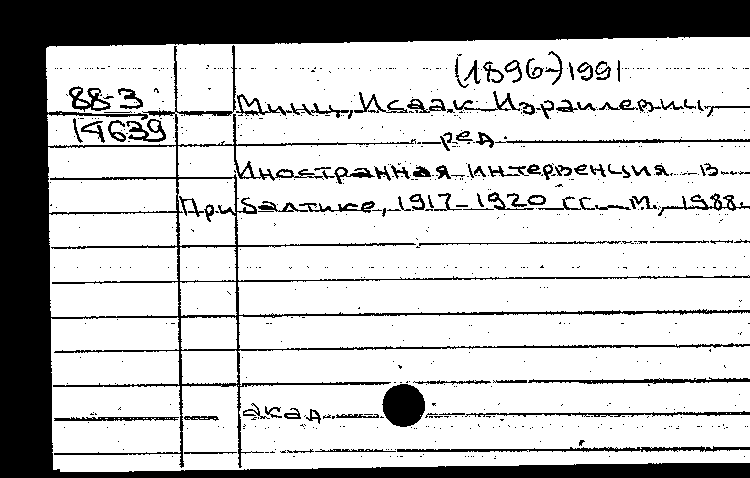 (1896-)1991
88-3
14639
Минц, Исаак Израилевич,
ред.
Иностранная интервенция в
Прибалтике, 1917-1920 гг. - М., 1988.
акад